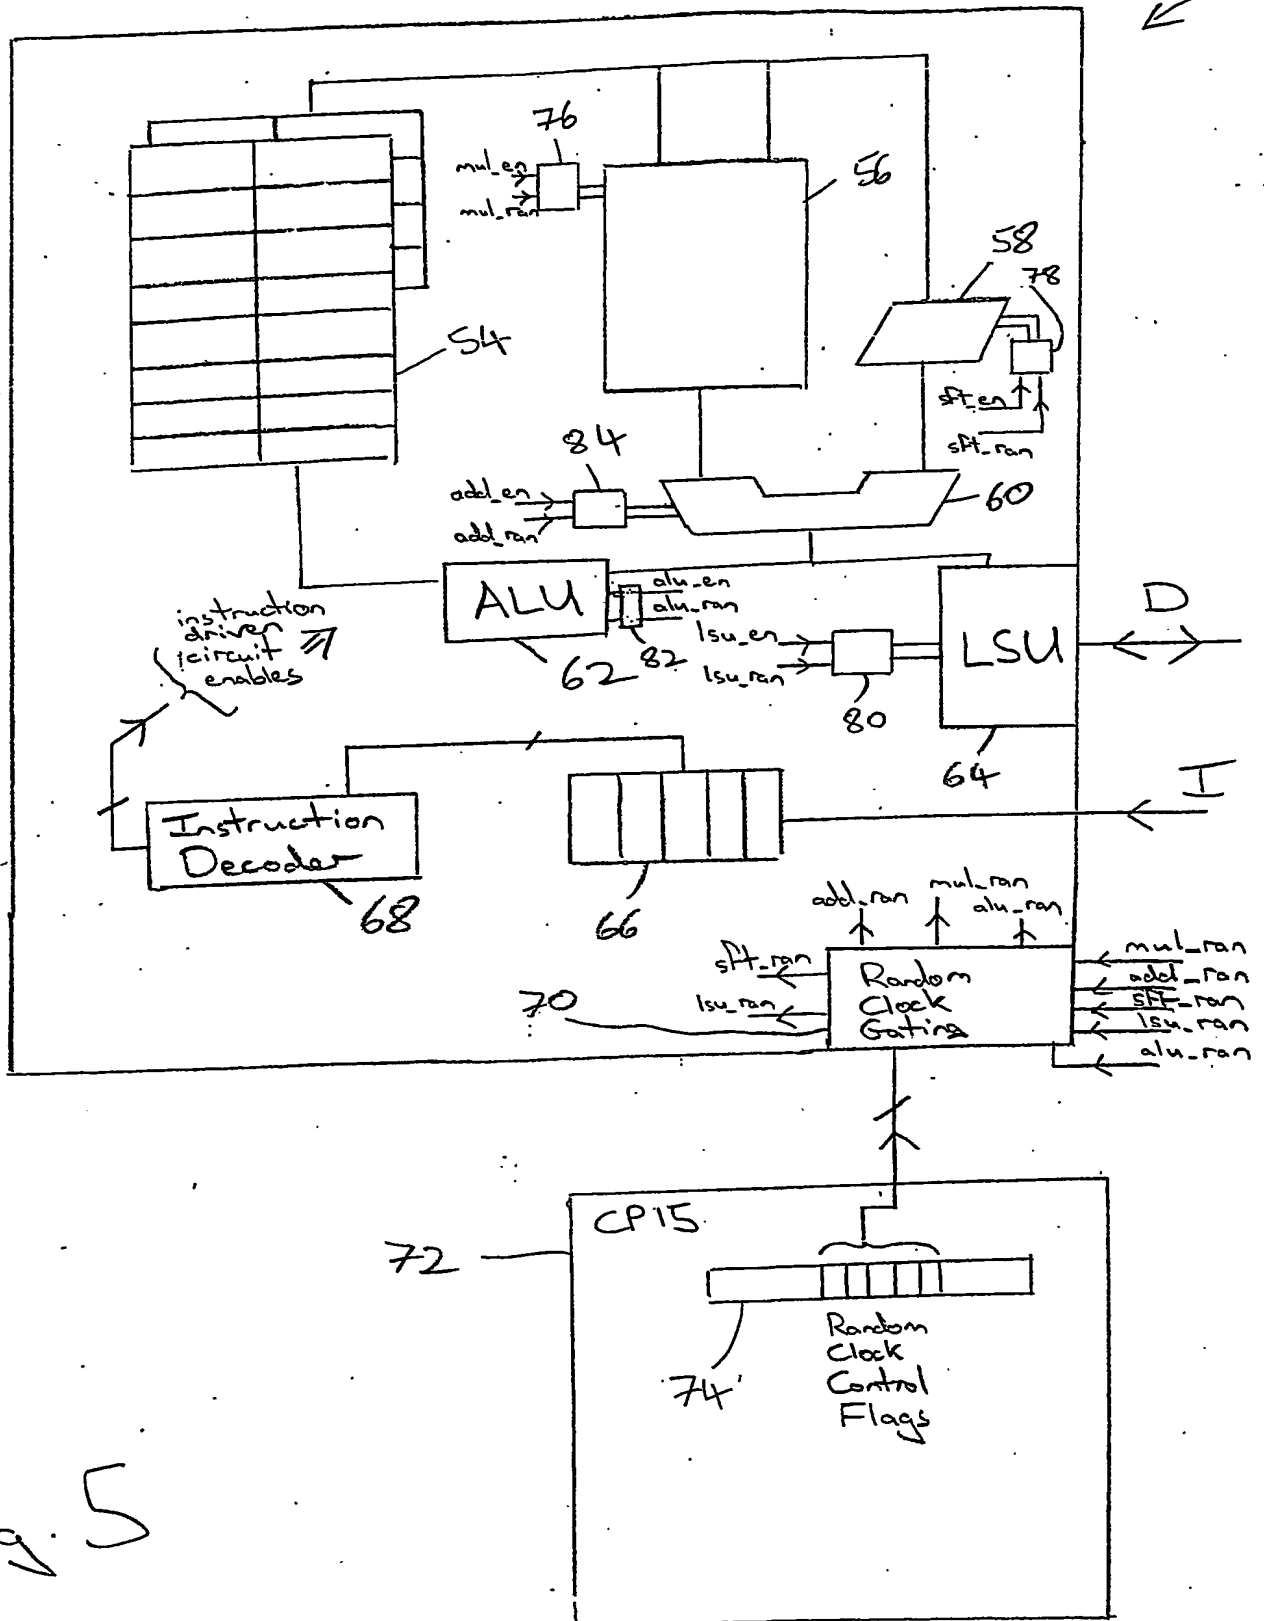 76
mul_en
mul_ran
56
58
78
54
sft_en
sft_ran
84
add_en
add_ran
60
ALU
alu_en
alu_ran
62
82
lsu_en
lsu_ran
80
LSU
64
D
instruction
driven
circuit
enables
I
Instruction
Decoder
68
66
add_ran
mul_ran
alu_ran
sft_ran
lsu_ran
70
Random
Clock
Gating
mul_ran
add_ran
sft_ran
lsu_ran
alu_ran
CP15
72
74
Random
Clock
Control
Flags
g. 5